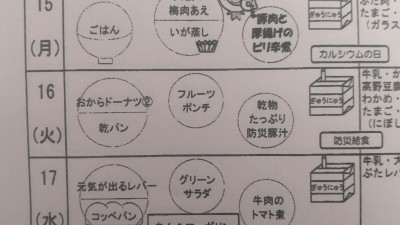 15
(月)
ごはん
梅肉あえ
いが蒸し
豚肉と
厚揚げの
ピリ辛煮
ぎゅうにゅう
たまご・
(ガラス
カルシウムの日
16
(火)
おからドーナツ②
乾パン
フルーツ
ポンチ
乾物
たっぷり
防災豚汁
ぎゅうにゅう
牛乳・か
高野豆腐
わかめ・
たまご・
(にぼし
防災給食
17
(水)
元気が出るレバー
コッペパン
グリーン
サラダ
牛肉の
トマト煮
ぎゅうにゅう
牛乳・大
ぶたレバ